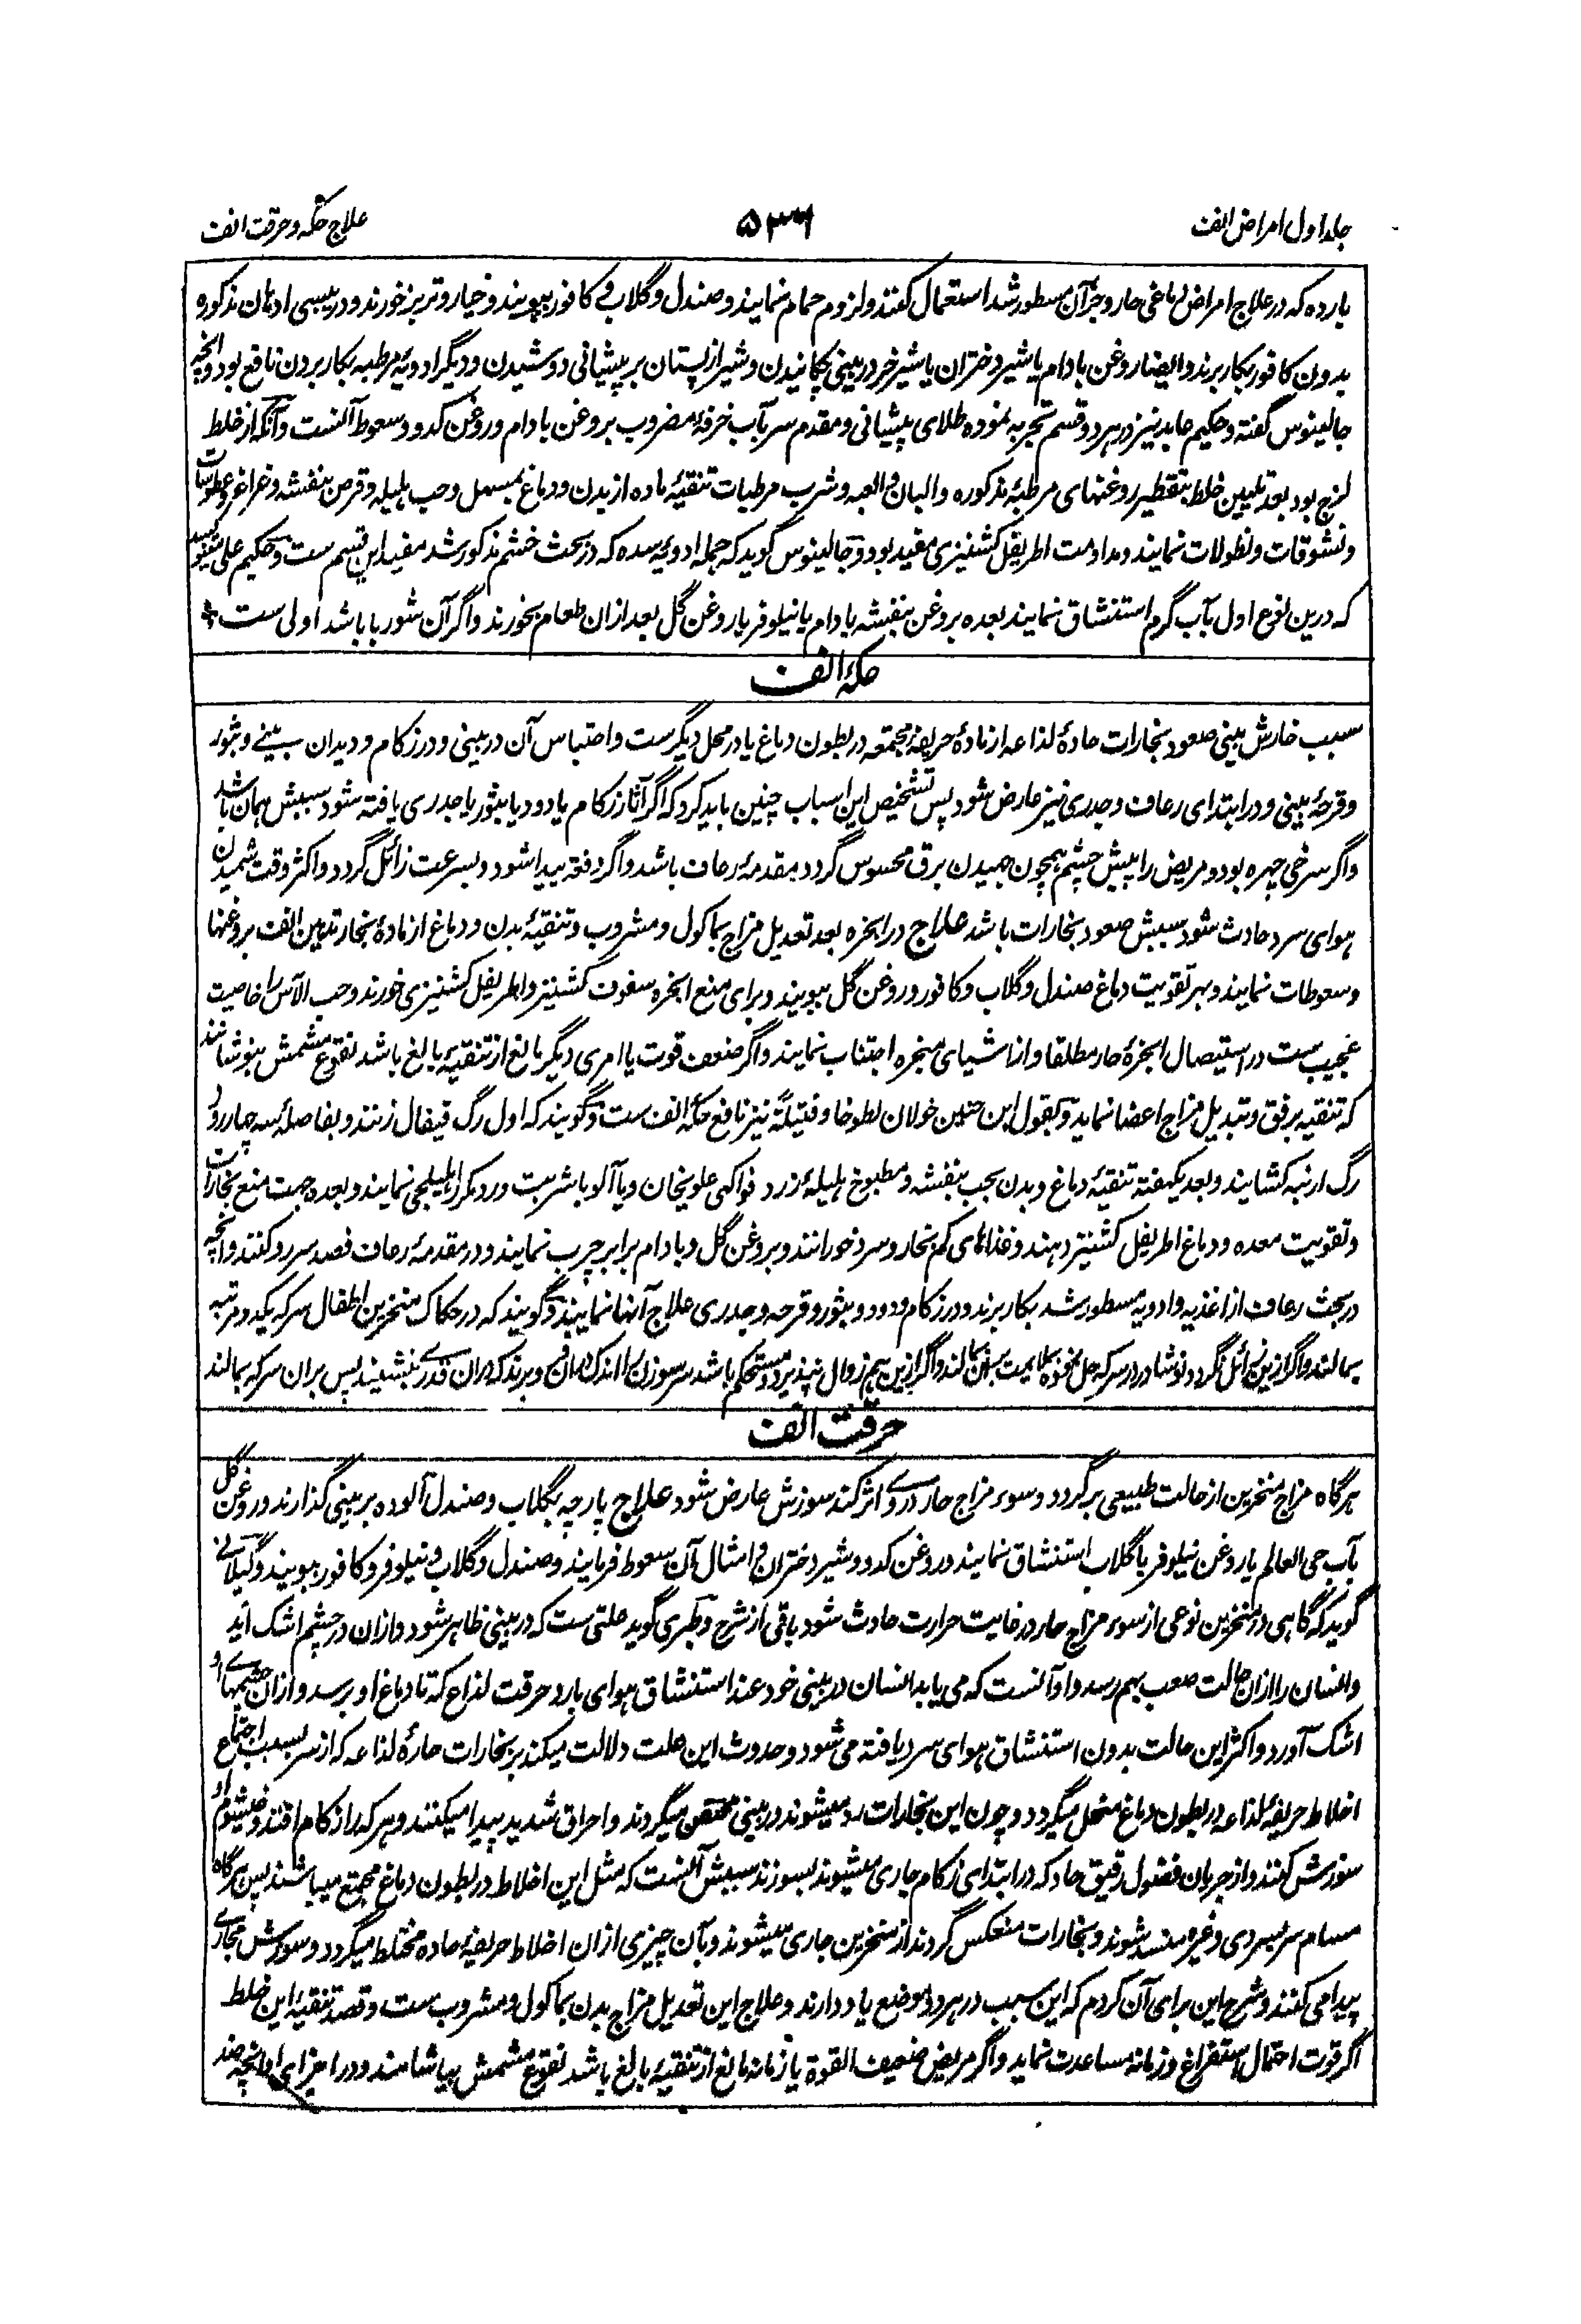 جلد اول امراض انف
۵۳۶
علاج حکه و حرقت انف
بارده که در علاج امراض دماغی حار و جز آن مسطور شد استعمال کنند و لزوم حمام نمایند و صندل و گلاب و کافور ببویند و خیار و تربز خورند و در یبسی ادهان مذکوره
بدون کافور بکار برند و ایضا روغن بادام یا شیر دختران یا شیر خر در بینی چکانیدن و شیر از پستان بر پیشانی دوشیدن و دیگر ادویهٔ مرطبه بکار بردن نافع بود و آنچه
جالینوس گفته و حکیم عابد نیز در هر دو قسم تجربه نموده طلای پیشانی و مقدم سر بآب خرفهٔ مضروب بروغن بادام و روغن کدو و سعوط آنست و آنکه از خلط
لزج بود بعد تلیین خلط بتقطیر روغنهای مرطبهٔ مذکوره و البان و العبه و شرب مرطبات تنقیهٔ ماده از بدن و دماغ بمسهل و حب هلیله و قرص بنفشه و غراغر و عطوسات
و نشوقات و نطولات نمایند و مداومت اطریفل کشنیزی مفید بود و جالینوس گوید که جمله ادویه سده که در بحث خشم مذکور شد مفید این قسم ست و حکیم علی میگوید
که درین نوع اول بآب گرم استنشاق نمایند بعده بروغن بنفشه بادام یا نیلوفر یا روغن گل بعد ازان طعام بخورند و اگر آن شوربا باشد اولی ست
حکهٔ انف
سبب خارش بینی صعود بخارات حادهٔ لذاعه از مادهٔ حریفهٔ مجتمعه در بطون دماغ یا در محل دیگرست و احتباس آن در بینی و در زکام و دیدان بینی و بثور
و قرحهٔ بینی و در ابتدای رعاف و جدری نیز عارض شود پس تشخیص این اسباب چنین باید کرد که اگر آثار زکام یا دود یا بثور یا جدری یافته شود سببش همان باشد
و اگر سرخی چهره بود و مریض را پیش چشم همچون جهیدن برق محسوس گردد مقدمهٔ رعاف باشد و اگر دفعة پیدا شود و بسرعت زائل گردد و اکثر وقت شمیدن
هوای سرد حادث شود سببش صعود بخارات باشد علاج در ابخره بعد تعدیل مزاج بماکول و مشروب و تنقیهٔ بدن و دماغ از مادهٔ بخار تدهین انف بروغنها
و سعوطات نمایند و بهر تقویت دماغ صندل و گلاب و کافور و روغن گل ببویند و برای منع ابخره سفوف کشنیز و اطریفل کشنیزی خورند و حب الآس را خاصیت
عجیب ست در استیصال ابخرهٔ حار مطلقا و از اشیای مبخره اجتناب نمایند و اگر ضعف قوت یا امری دیگر مانع از تنقیهٔ بالغ باشد نقوع مشمش بنوشانند
که تنقیه برفق و تبدیل مزاج اعضا نماید و بقول ابن حنین خولان لطوخا و فتیلة نیز نافع حکهٔ انف ست و گویند که اول رگ قیفال زنند و بفاصلهٔ سه چهار روز
رگ ارنبه کشایند و بعد یکهفته تنقیهٔ دماغ و بدن بحب بنفشه و مطبوخ هلیلهٔ زرد فواکهی علویخان و یا آلو با شربت ورد مکرر اهلیلجی نمایند و بعده جهت منع بخارات
و تقویت معده و دماغ اطریفل کشنیز دهند و غذاهای کم بخار و سرد خورانند و بروغن گل و بادام برابر چرب نمایند و در مقدمهٔ رعاف فصد سررو کنند و آنچه
در بحث رعاف از اغذیه و ادویه مسطور شد بکار برند و در زکام و دود و بثور و قرحه و جدری علاج آنها نمایند و گویند که در حکاک منخرین اطفال سرکه یکدو مرتبه
بمالند و اگر ازین زائل نگردد نوشادر در سرکه حل نموده بملایمت بران بمالند و اگر ازین هم زوال نپذیرد و مستحکم باشد سر سوزن را اندک بران فرو برند که بران قدری بنشیند پس بران سرکه بمالند
حرقت انف
هرگاه مزاج منخرین از حالت طبیعی برگردد و سوء مزاج حار دروی اثر کند سوزش عارض شود علاج پارچه بگلاب و صندل آلوده بر بینی گذارند و روغن گل
بآب حی العالم یا روغن نیلوفر با گلاب استنشاق نمایند و روغن کدو و شیر دختران و امثال آن سعوط فرمایند و صندل و گلاب و نیلوفر و کافور ببویند و گیلانی
گوید که گاهی در منخرین نوعی از سوء مزاج حار در غایت حرارت حادث شود باقی از شرح و طبری گوید علتی ست که در بینی ظاهر شود و ازان در چشم اشک آید
و انسان را ازان حالت صعب بهم رسد و او آنست که می یابد انسان در بینی خود عند استنشاق هوای بارد حرقت لذاع که تا دماغ او برسد و ازان چشمهای او
اشک آورد و اکثر این حالت بدون استنشاق هوای سرد یافته می شود و حدوث این علت دلالت میکند بر بخارات حارهٔ لذاعه که از سر بسبب اجتماع
اخلاط حریفهٔ لذاعه در بطون دماغ متحلل میگردد و چون این بخارات رد میشوند در بینی محتقن میگردند و احراق شدید پیدا میکنند و هر که را زکام افتد و خیشوم او
سوزش کند و از جریان فضول رقیق حاد که در ابتدای زکام جاری میشوند بسوزند سببش آنست که مثل این اخلاط در بطون دماغ مجتمع میباشند پس هرگاه
مسام سر بسردی و غیره منسد شوند و بخارات منعکس گردند از منخرین جاری میشوند و بآن چیزی ازان اخلاط حریفهٔ حاده مختلط میگردد و سوزش مجاری
پیدا می کنند و شرح این برای آن کردم که این سبب در هر دو موضع یاد دارند و علاج این تعدیل مزاج بدن بماکول و مشروب ست و قصد تنقیهٔ این خلط
اگر قوت احتمال استفراغ و زمانه مساعدت نماید و اگر مریض ضعیف القوة یا زمانه مانع از تنقیهٔ بالغ باشد نقوع مشمش بیاشامند و در اجزای او آنچه ضد